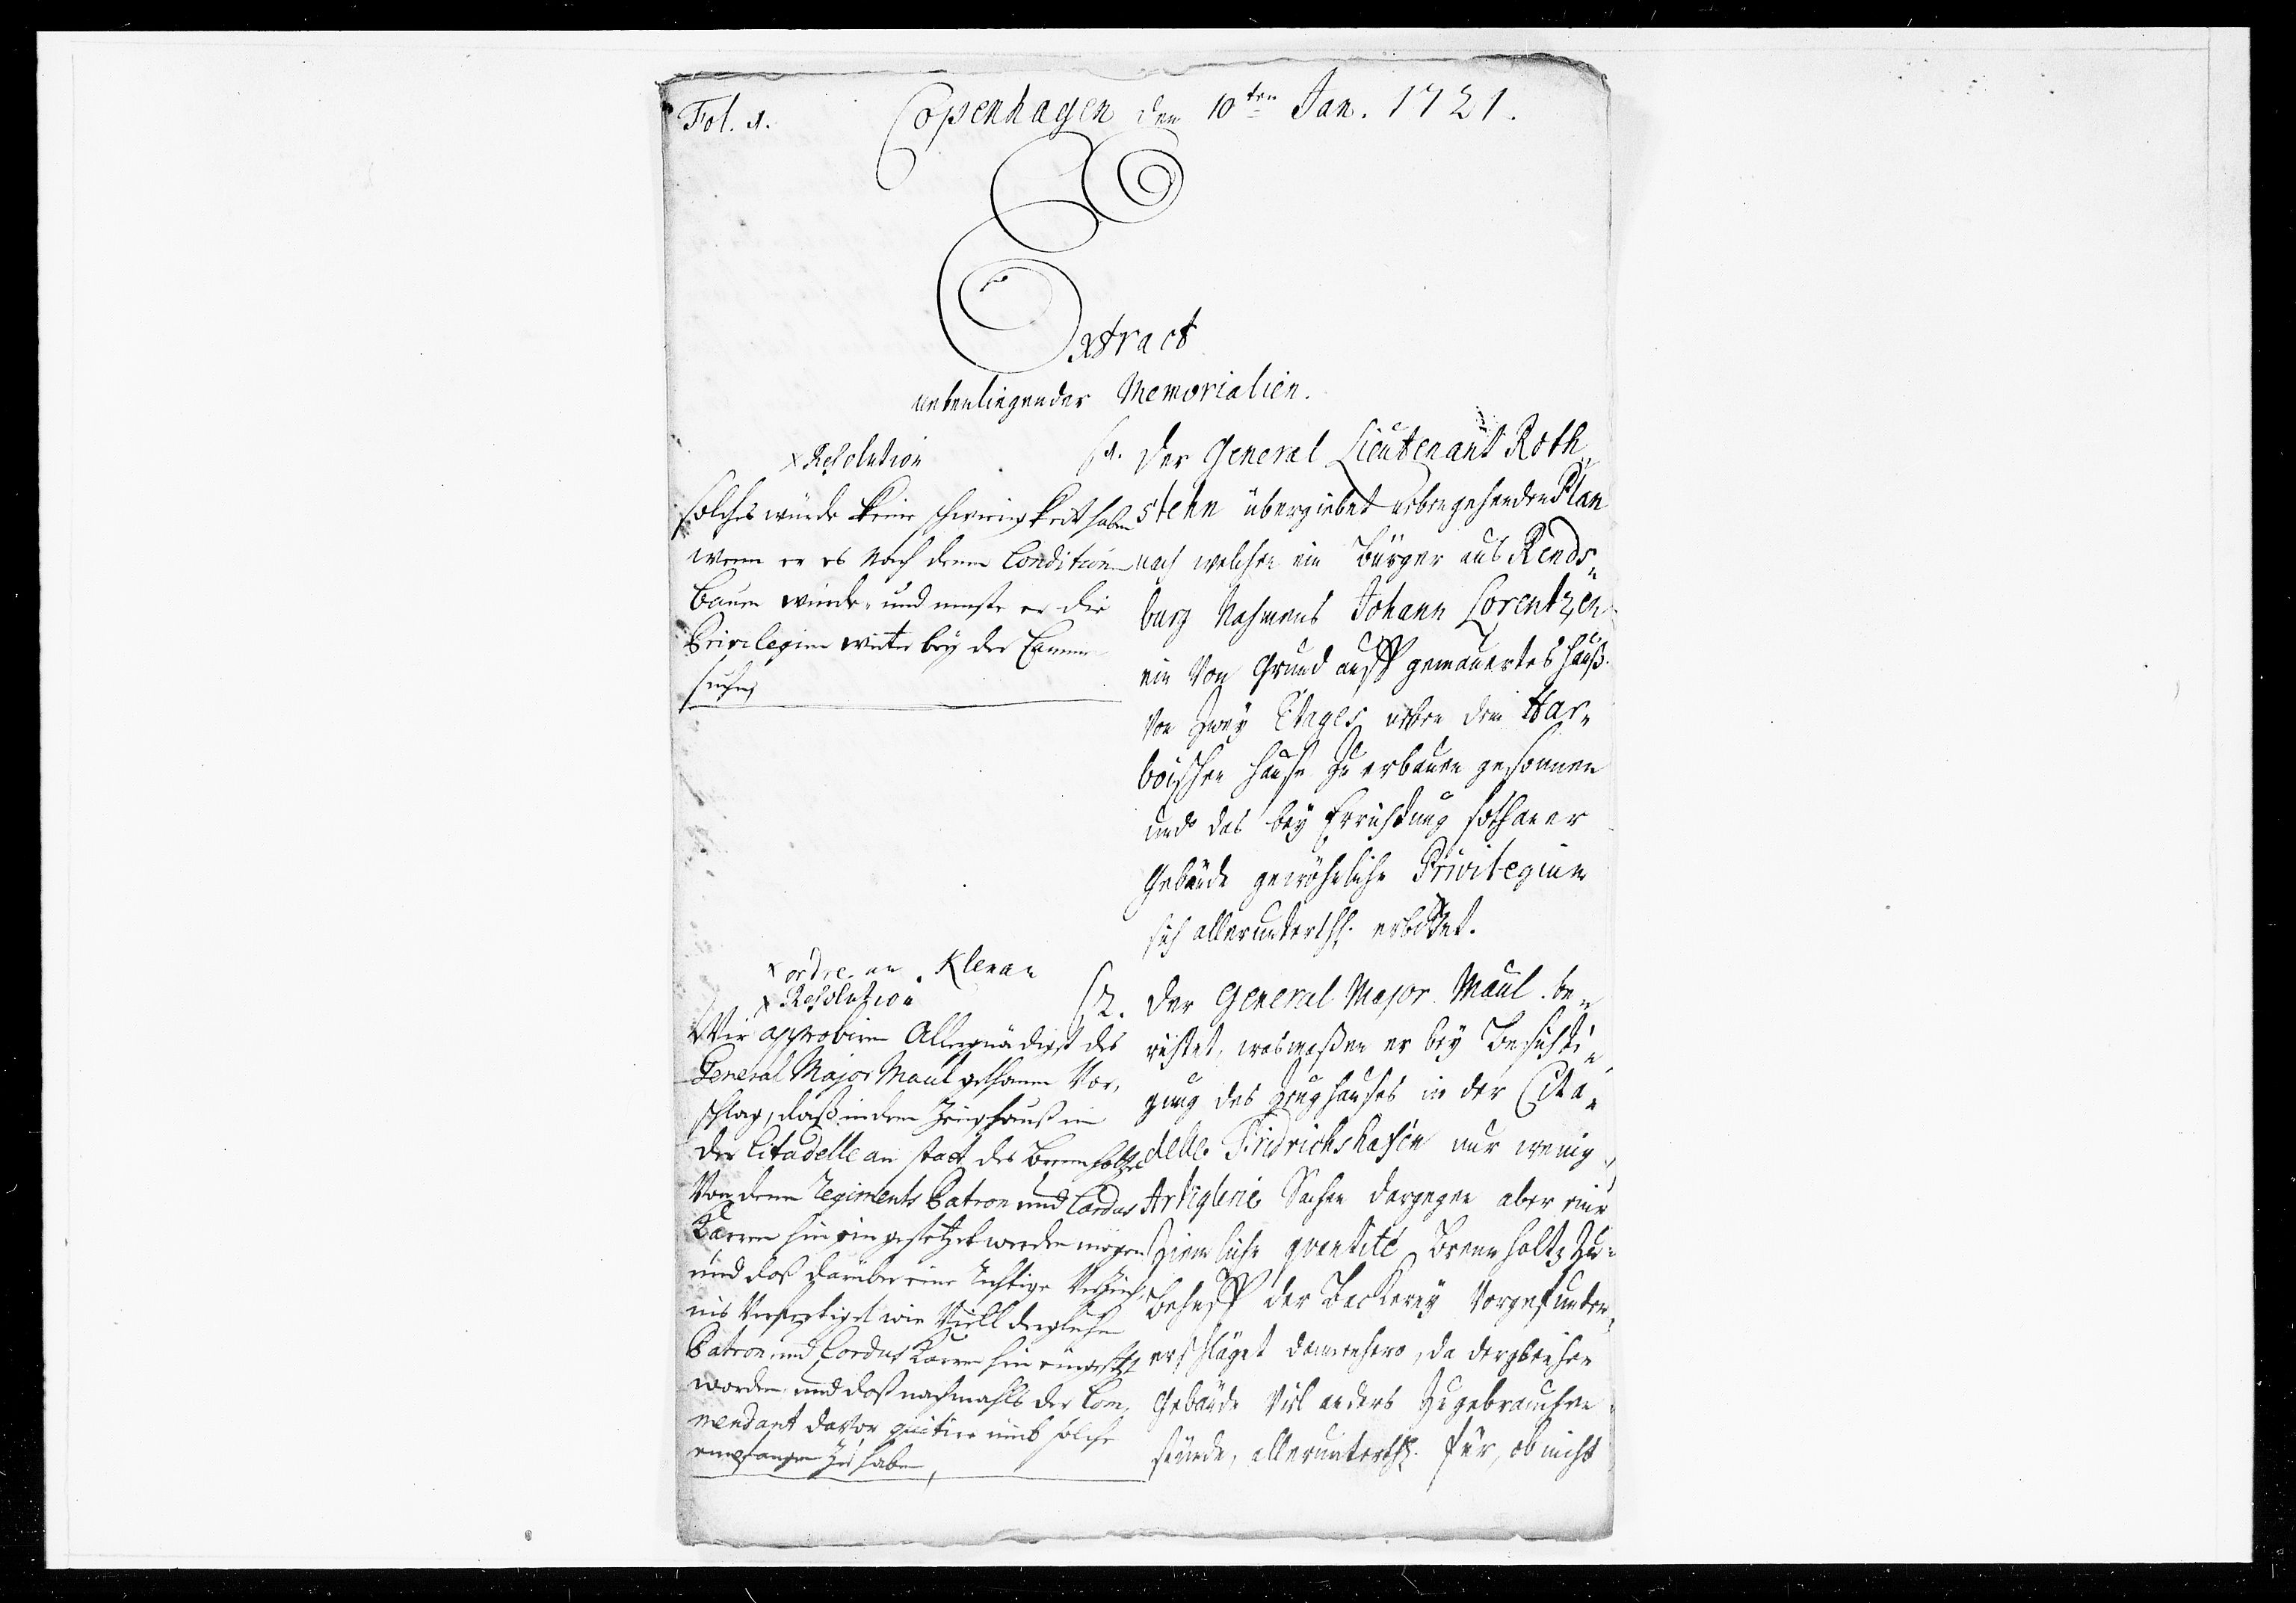 Fol. 1.
Copenhagen den 10ten Jan. 1721.
Extract
nebenliegender Memorialien.
x Resolution
solches würde keine schwierigkeit haben
wenn er es nach denen Condition
bauen würde, und muste er die
Privilegien weiter bey der Cammer
suchen
1. Der General Lieutenant Roth„
stehn übergiebet nebengehenden Plan
nach welchen ein Bürger aus Rends„
burg Nahmens Johann Lorentzen
ein von Grund auff gemauertes Hauß
von Zwey Etages neben dem Har„
boischen Hause zu erbauen gesonnen
und das bey Errichtung sothaner
Gebäude gewöhnliche Privilegium
sich allerunterthl. erbittet.
x ordre an Kleran
x Resolution
Wir approbiren Allergnädigst des
General Major Maul gethanen Vor„
schlag, daß in dem Zeughauß in
der Citadelle an statt des Brennholtzes
von denen Regiments Patron und Cardus
Karren hin ein gesetzet werden mögen
und daß darüber eine Richtige Verzeich„
nis verfertiget wie viell dergleichen
Patron und Cardus Karren hin eingesetzt
worden, und daß nachmahls der Com„
mendant davor quitire umb solche
empfangen zu haben,
2. Der General Major Maul be„
richtet, wasmaßen er bey Besichti„
gung des Zeughauses in der Cita„
delle Fridrichshafen nur wenig
Artiglerie Sachen dargegen aber eine
Ziemliche quantité Brennholtz zu
Behuff der Beckerey vorgefunden,
erschläget dannenhero, da dergleichen
Gebäude viel anders zu gebrauchen
stünde, allerunterthl. für, ob nicht